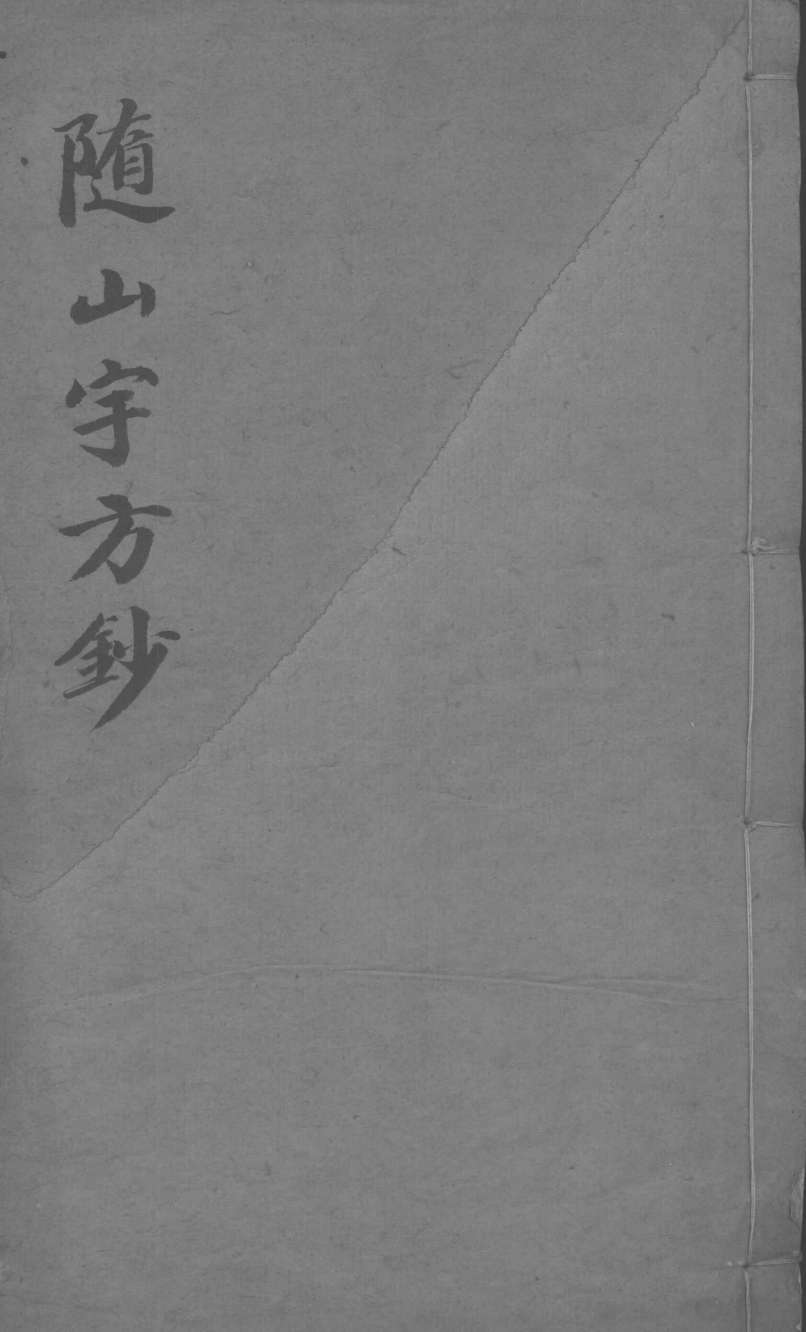 随山宇方鈔